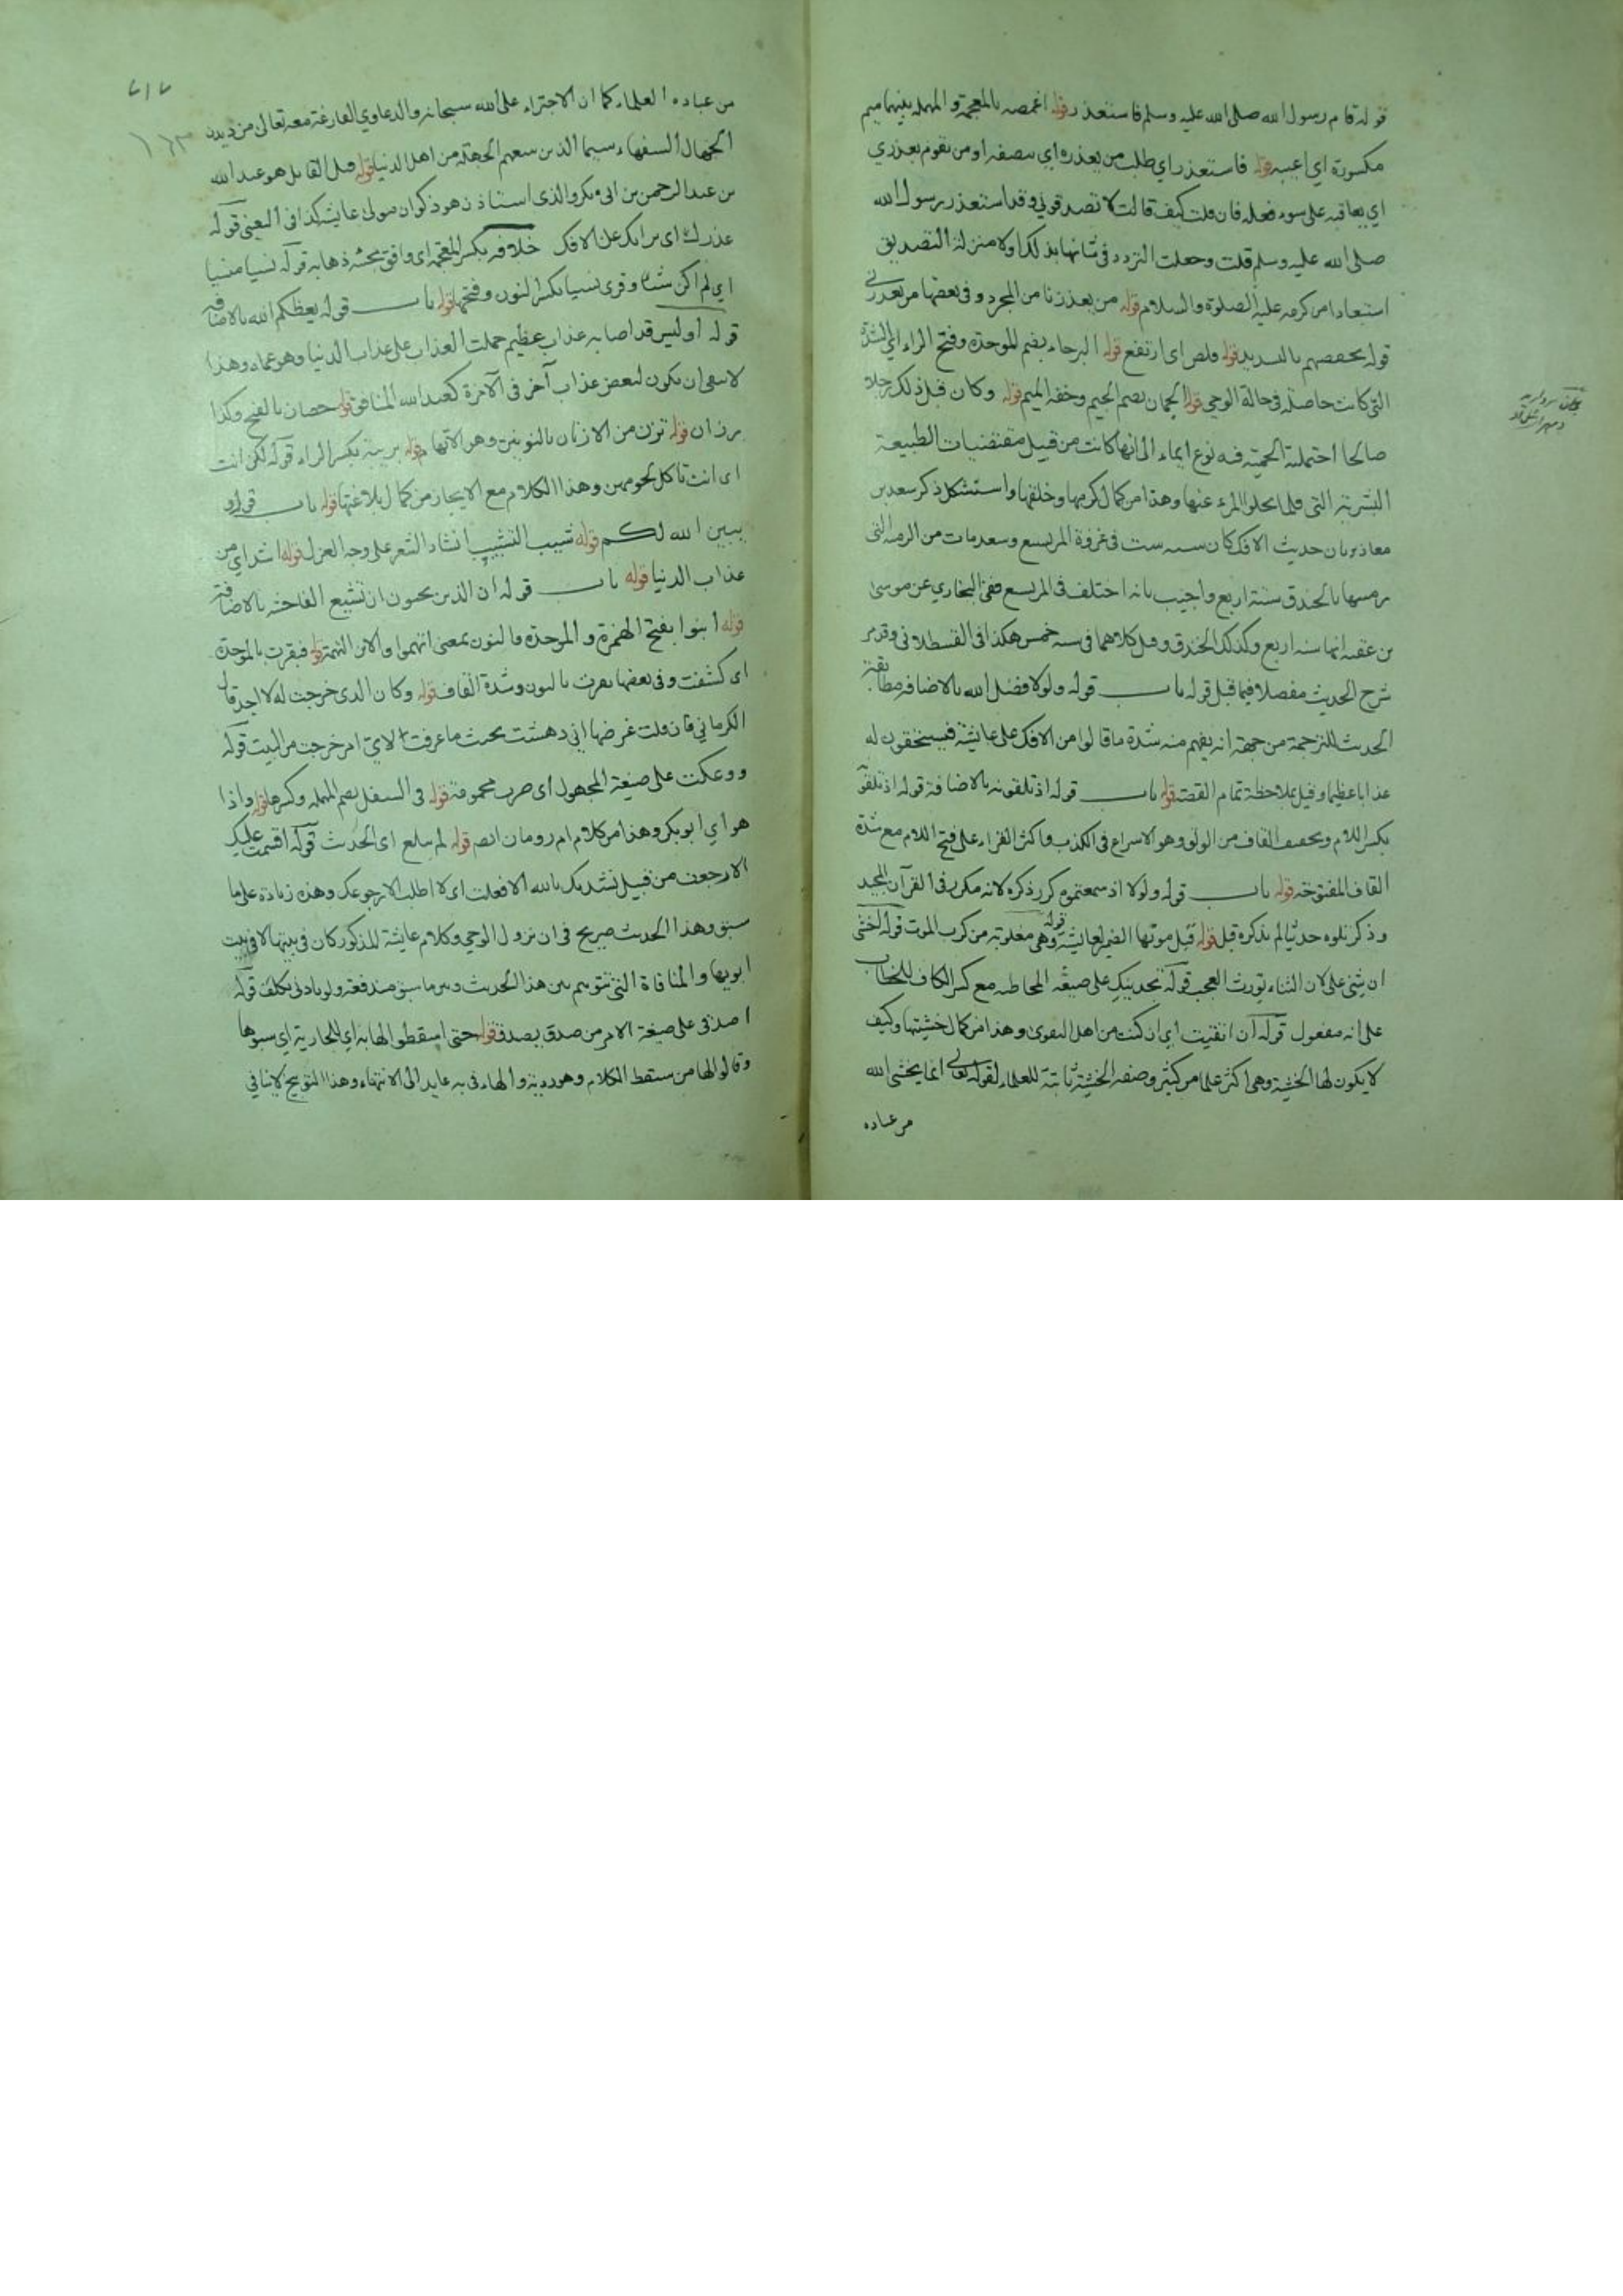 قوله قام رسول الله صلى الله عليه وسلم فاستعذر قوله اغمصه بالمعجمة والمهملة بينهما ميم
مكسورة اي اعيبه قوله فاستعذر اي طلب من يعذره اي ينصفه او من يقوم بعذري
اي يعاقبه على سوء فعله فان قلت كيف قالت لا تصدقوني وقد استعذر رسول الله
صلى الله عليه وسلم قلت وجعلت التردد في شانها بذلك اولا منزلة التصديق
استبعادا من كرمه عليه الصلوة والسلام قوله من يعذرنا من المجرد وفي بعضها من يعذرني
قوله يخفضهم بالتشديد قوله وقلص اي ارتفع قوله البرحاء بضم الموحدة وفتح الراء اي الشدة
التي كانت حاصلة في حالة الوحي قوله الجمان بضم الجيم وخفة الميم قوله وكان قبل ذلك رجلا
صالحا احتملته الحمية فيه نوع ايماء الى انها كانت من قبيل مقتضيات الطبيعة
البشرية التي قلما يخلو المرء عنها وهذا من كمال كرمها وخلقها واستشكل ذكر سعد بن
معاذ بان حديث الافك كان سنة ست في غزوة المريسيع وسعد مات من الرمية التي
رميها بالخندق سنة اربع واجيب بانه اختلف في المريسيع ففي البخاري عن موسى
بن عقبة انها سنة اربع وكذلك الخندق وقيل كلاهما في سنة خمس هكذا في القسطلاني وقد مر
شرح الحديث مفصلا فيما قبل قوله باب قوله ولولا فضل الله بالاضافة مطابقة
الحديث للترجمة من جهة انه يفهم منه شدة ما قالوا من الافك على عايشة فيستحقون له
عذابا عظيما وقيل بملاحظة تمام القصة قوله باب قوله اذ تلقونه بالاضافة قوله اذ تلقونه
بكسر اللام وتخفيف القاف من الولق وهو الاسراع في الكذب واكثر القراء على فتح اللام مع شدة
القاف المفتوحة قوله باب قوله ولولا اذ سمعتموه كرر ذكره لانه مكرر في القرآن المجيد
وذكر تلوه حديثا لم يذكره قبل قوله قبل موتها الضمير لعايشة قوله وهي مغلوبة من كرب الموت قوله اخشى
ان يثني علي لان الثناء يورث العجب قوله تجدينك على صيغة المخاطبة مع كسر الكاف للخطاب
على انه مفعول قوله ان اتقيت اي ان كنت من اهل التقوى وهذا من كمال خشيتها وكيف
لا يكون لها الخشية وهي اكثر علما من كثير وصفة الخشية ثابتة للعلماء لقوله تعالى انما يخشى الله
من عباده
من عباده العلماء كما ان الاجتراء على الله سبحانه والدعاوي الفارغة معه تعالى من ديدن
الجهال السفهاء سيما الذين يتبعهم الجهلة من اهل الدنيا قوله قيل القايل هو عبد الله
بن عبد الرحمن بن ابي بكر والذي استاذن هو ذكوان مولى عايشة كذا في العيني قوله
عذرك اي براتك عن الافك خلافه بكسر المعجمة اي وافق مجيئه ذهابه قوله نسيا منسيا
اي لم اكن شيئا وقرئ نسيا بكسر النون وفتحها قوله باب قوله يعظكم الله بالاضافة
قوله اوليس قد اصابه عذاب عظيم حملت العذاب على عذاب الدنيا وهو عماه وهذا
لا ينفي ان يكون لبعض عذاب آخر في الآخرة كعبد الله المنافق قوله حصان بالفتح وكذا
رزان قوله تزن من الازنان بالنونين وهو الاتهام قوله بريبة بكسر الراء قوله لكن انت
اي انت تاكل لحومهن وهذا الكلام مع الايجاز من كمال بلاغتها قوله باب قوله و
يبين الله لكم قوله شبب التشبيب انشاد الشعر على وجه الغزل قوله اشد اي من
عذاب الدنيا قوله باب قوله ان الذين يحبون ان تشيع الفاحشة بالاضافة
قوله ابنوا بفتح الهمزة والموحدة والنون بمعنى اتهموا والابن التهمة قوله فبقرت بالموحدة
اي كشفت وفي بعضها نقرت بالنون وشدة القاف قوله وكان الذي خرجت له لا اجد قال
الكرماني فان قلت غرضها اني دهشت بحيث ما عرفت لاي امر خرجت من البيت قوله
ووعكت على صيغة المجهول اي صرت محمومة قوله في السفل بضم المهملة وكسرها قوله واذا
هو اي ابو بكر وهذا من كلام ام رومان ايضا قوله لم يبلغ اي الحديث قوله اقسمت عليك
الا رجعت من قبيل نشدتك بالله الا فعلت اي لا اطلب الا رجوعك وهذه زيادة على ما
سبق وهذا الحديث صريح في ان نزول الوحي وكلام عايشة المذكور كان في بيتها لا في بيت
ابويها والمنافاة التي تتوهم بين هذا الحديث وبين ما سبق مندفعة ولو بادنى تكلف قوله
اصدقي على صيغة الامر من صدق يصدق قوله حتى اسقطوا لها به اي للجارية اي سبوها
وقالوا لها من سقط الكلام وهو رديه والهاء في به عايد الى الانتهار وهذا التوبيخ لا ينافي